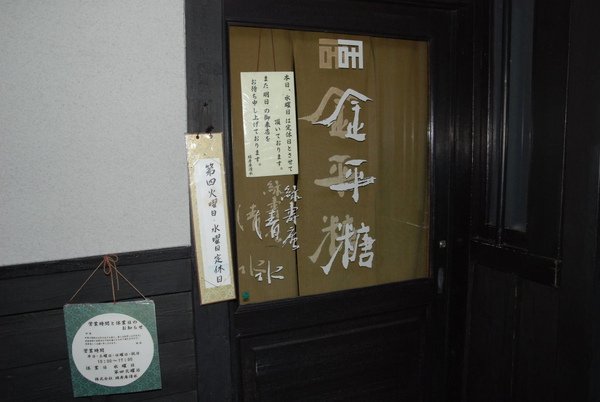 本日、水曜日は定休日とさせて
頂いております。
また明日の御来店を
お待ち申し上げております。
緑寿庵清水
金平糖
緑寿庵
清水
第四火曜日・水曜日定休日
営業時間と休業日の
お知らせ
営業時間
10:00〜17:00
休業日 水曜日
第四火曜日
株式会社 緑寿庵清水